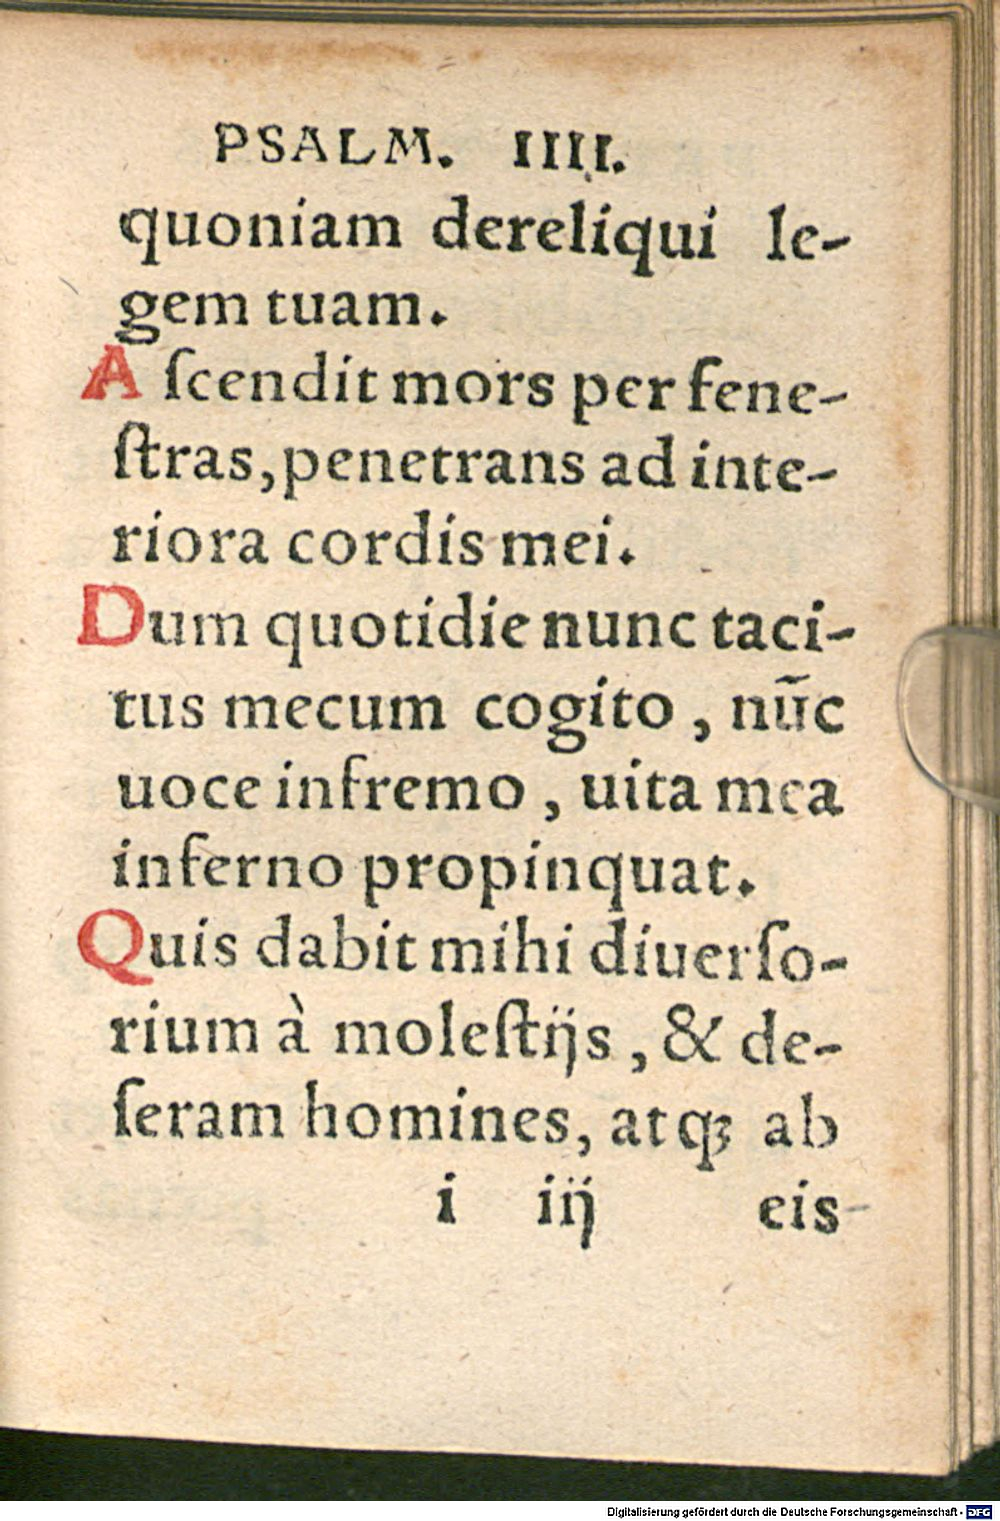 PSALM. IIII.
quoniam dereliqui le-
gem tuam.
A ſcendit mors per fene-
ſtras, penetrans ad inte-
riora cordis mei.
Dum quotidie nunc taci-
tus mecum cogito , nūc
uoce infremo , uita mea
inferno propinquat.
Quis dabit mihi diuerſo-
rium à moleſtijs , & de-
ſeram homines, atq; ab
i iij eis
Digitalisierung gefördert durch die Deutsche Forschungsgemeinschaft - DFG